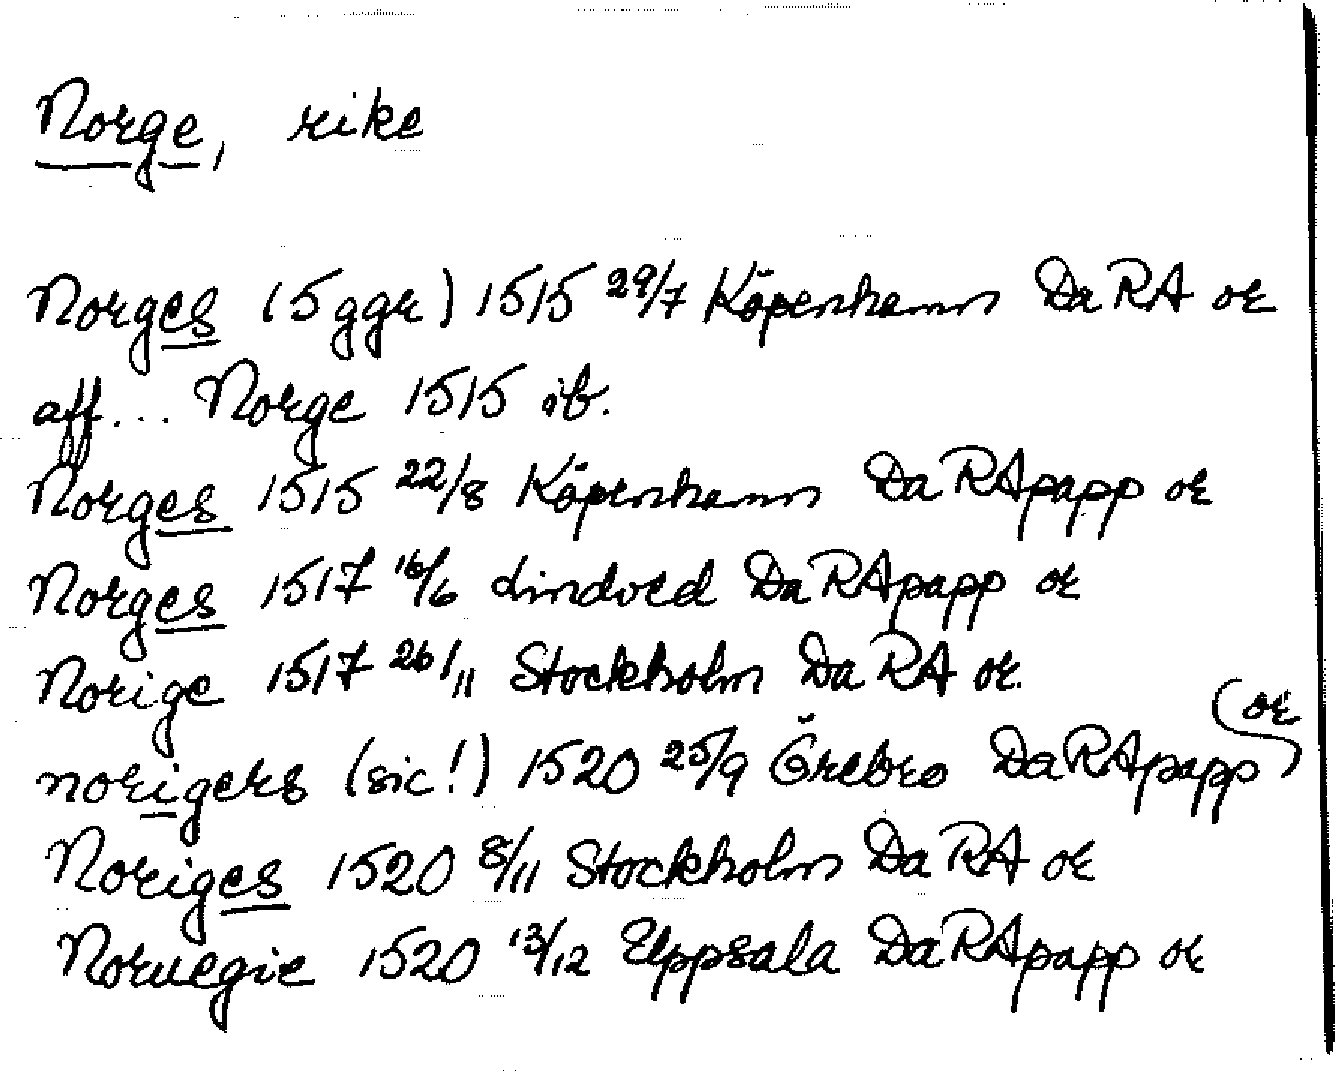 Norge, rike
Norges (5 ggr) 1515 29/7 Köpenhamn DaRA or
aff... Norge 1515 ib.
Norges 1515 22/8 Köpenhamn DaRApapp or
Norges 1517 16/6 Lindved DaRApapp or
Norige 1517 26/11 Stockholm DaRA or.
norigers (sic!) 1520 25/9 Örebro DaRApapp (or
Noriges 1520 8/11 Stockholm DaRA or
Noruegie 1520 13/12 Uppsala DaRApapp or